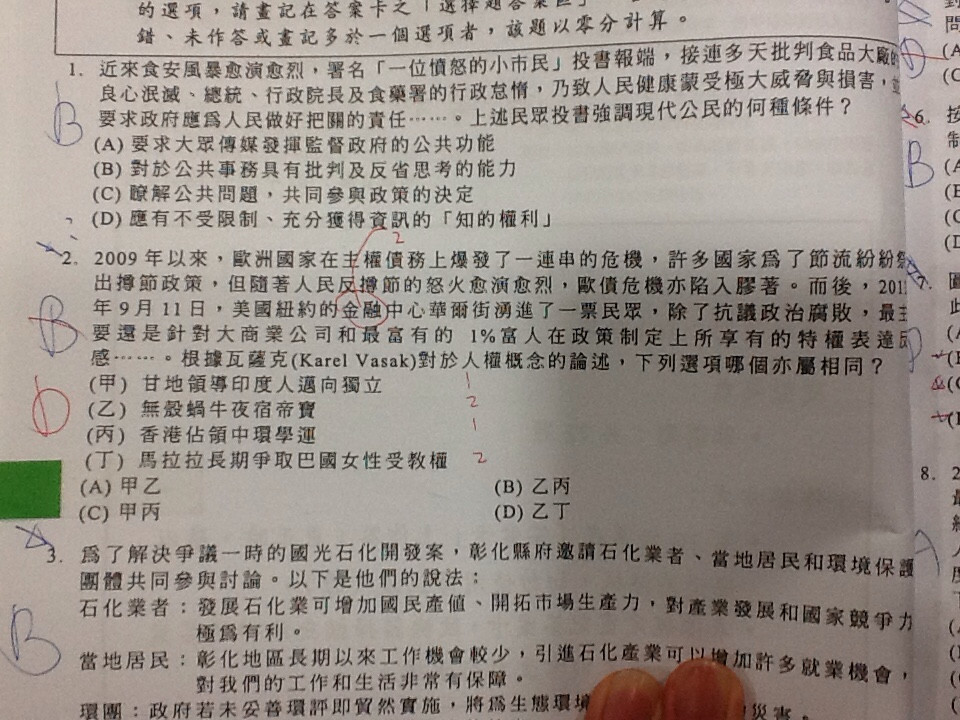 的選項，請畫記在答案卡之「選擇題答案區」
錯、未作答或畫記多於一個選項者，該題以零分計算。
1. 近來食安風暴愈演愈烈，署名「一位憤怒的小市民」投書報端，接連多天批判食品大廠的
良心泯滅、總統、行政院長及食藥署的行政怠惰，乃致人民健康蒙受極大威脅與損害，並
要求政府應為人民做好把關的責任……。上述民眾投書強調現代公民的何種條件？
B
(A) 要求大眾傳媒發揮監督政府的公共功能
(B) 對於公共事務具有批判及反省思考的能力
(C) 瞭解公共問題，共同參與政策的決定
(D) 應有不受限制、充分獲得資訊的「知的權利」
2
2. 2009 年以來，歐洲國家在主權債務上爆發了一連串的危機，許多國家為了節流紛紛
出撙節政策，但隨著人民反撙節的怒火愈演愈烈，歐債危機亦陷入膠著。而後，201
年 9 月 11 日，美國紐約的金融中心華爾街湧進了一票民眾，除了抗議政治腐敗，最主
B
要還是針對大商業公司和最富有的 1%富人在政策制定上所享有的特權表達反
感……。根據瓦薩克(Karel Vasak)對於人權概念的論述，下列選項哪個亦屬相同？
(甲) 甘地領導印度人邁向獨立 1
D
(乙) 無殼蝸牛夜宿帝寶 2
(丙) 香港佔領中環學運 1
(丁) 馬拉拉長期爭取巴國女性受教權 2
(A) 甲乙 (B) 乙丙
(C) 甲丙 (D) 乙丁
3. 為了解決爭議一時的國光石化開發案，彰化縣府邀請石化業者、當地居民和環境保護
團體共同參與討論。以下是他們的說法：
石化業者：發展石化業可增加國民產值、開拓市場生產力，對產業發展和國家競爭力
極為有利。
B
當地居民：彰化地區長期以來工作機會較少，引進石化產業可以增加許多就業機會，
對我們的工作和生活非常有保障。
環團：政府若未妥善環評即貿然實施，將為生態環境 的災害。
D
(A
6. 按
制
B
(A
(E
(C
(D
圖
此
(A
8. 2